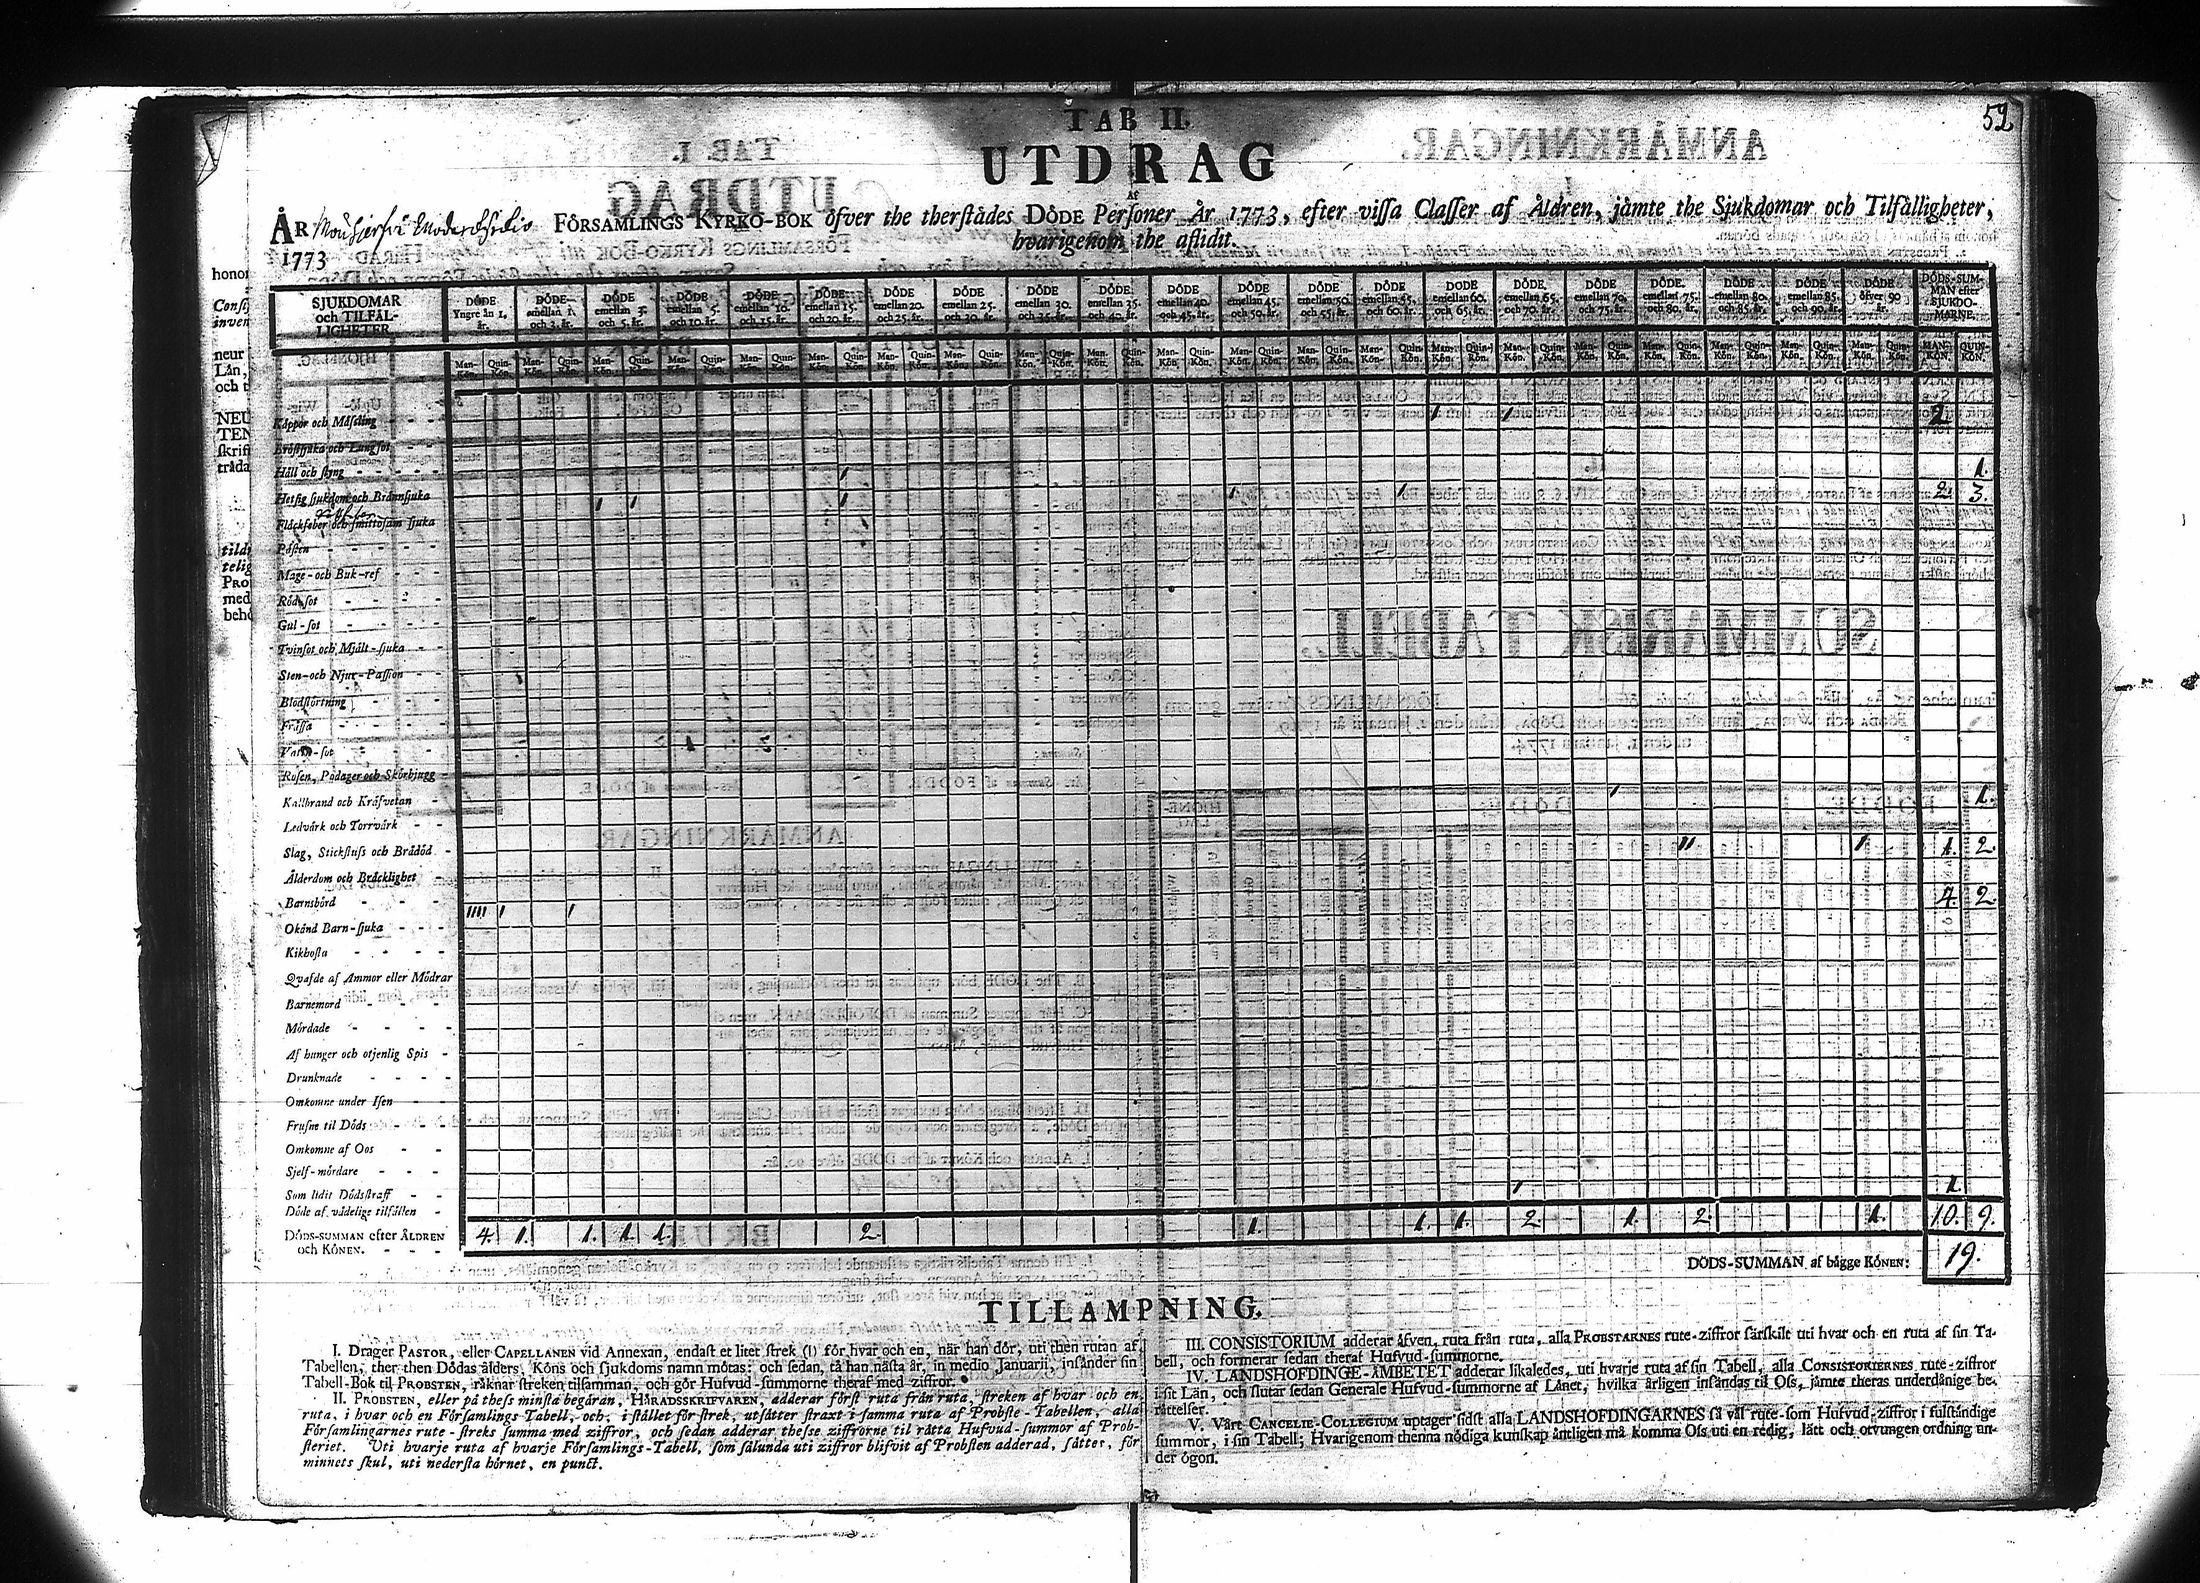 52
TAB II.
UTDRAG
AF
ÅR FÖRSAMLINGS KYRKO-BOK öfver the therstådes DÖDE Personer År 1773, efter vissa Classer af Åldren, jämte the Sjukdomar och Tilfälligheter,
1773 hvarigenom the aflidit.
SJUKDOMAR och TILFÄL-LIGHETER.
DÖDE Yngre än 1. år.
DÖDE emellan 1. och 3. år.
DÖDE emellan 3. och 5. år.
DÖDE emellan 5. och 10. år.
DÖDE emellan 10. och 15. år.
DÖDE emellan 15. och 20. år.
DÖDE emellan 20. och 25. år.
DÖDE emellan 25. och 30. år.
DÖDE emellan 30. och 35. år.
DÖDE emellan 35. och 40. år.
DÖDE emellan 40. och 45. år.
DÖDE emellan 45. och 50. år.
DÖDE emellan 50. och 55. år.
DÖDE emellan 55. och 60. år.
DÖDE emellan 60. och 65. år.
DÖDE emellan 65. och 70. år.
DÖDE emellan 70. och 75. år.
DÖDE emellan 75. och 80. år.
DÖDE emellan 80. och 85. år.
DÖDE emellan 85. och 90. år.
DÖDE öfver 90 år.
DÖDS-SUM-MAN efter SJUKDO-MARNE.
Man-Kön. Quin-Kön. Man-Kön. Quin-Kön. Man-Kön. Quin-Kön. Man-Kön. Quin-Kön. Man-Kön. Quin-Kön. Man-Kön. Quin-Kön. Man-Kön. Quin-Kön. Man-Kön. Quin-Kön. Man-Kön. Quin-Kön. Man-Kön. Quin-Kön. Man-Kön. Quin-Kön. Man-Kön. Quin-Kön. Man-Kön. Quin-Kön. Man-Kön. Quin-Kön. Man-Kön. Quin-Kön. Man-Kön. Quin-Kön. Man-Kön. Quin-Kön. Man-Kön. Quin-Kön. Man-Kön. Quin-Kön. Man-Kön. Quin-Kön. Man-Kön. Quin-Kön. MAN-KÖN. QUIN-KÖN.
Kåppor och Måssling - - - ı ı 2.
Bröstsjuka och Lungsot - - -
Håll och styng - - - - ı 1.
Hetsig sjukdom och Brännsjuka ı ı ı ı ı 2. 3.
Fläckfeber och smittosam sjuka
Pästen - - - - - -
Mage- och Buk-ref - - -
Röd-sot - - - -
Gul-sot - - - -
Tvinsot och Mjält-sjuka - -
Sten- och Njur-Passion - -
Blodstörtning - - - -
Frässa - - - -
Vattu-sot - - - -
Rosen, Podager och Skörbjugg -
Kallbrand och Kräfvetan - ı 1.
Ledvärk och Torrvärk - -
Slag, Stickfluss och Brådöd - ıı ı 1. 2.
Ålderdom och Bräcklighet
Barnsbörd - - - - ıııı ı ı 4. 2
Okänd Barn-sjuka - - -
Kikhosta - - - -
Qvafde af Ammor eller Mödrar
Barnemord - - - -
Mördade - - - -
Af hunger och otjenlig Spis -
Drunknade - - - -
Omkomne under Isen - -
Frusne til Döds - - - -
Omkomne af Oos - -
Sjelf-mördare - - -
Som lidit Dödsstraff - - ı 1.
Döde af vådelige tilfällen -
DÖDS-SUMMAN efter ÅLDREN och KÖNEN. - - - 4. 1. 1. 1. 1. 2. 1. 1. 1. 2. 1. 2 1. 10. 9.
DÖDS-SUMMAN af bägge KÖNEN: 19.
TILLAMPNING.
I. Drager PASTOR, eller CAPELLANEN vid Annexan, endast et litet strek (ı) för hvar och en, när han dör, uti then rutan af
Tabellen, ther then Dödas ålders, Köns och sjukdoms namn mötas; och sedan, tå han nästa år, in medio Januarii, insänder sin
Tabell-Bok til PROBSTEN, räknar streken tilsamman, och gör Hufvud-summorne theraf med ziffror.
II. PROBSTEN, eller på thess minsta begäran, HÄRADSSKRIFVAREN, adderar först ruta från ruta, streken af hvar och en
ruta, i hvar och en Församlings-Tabell, och, i stället för strek, utsätter straxt i samma ruta af Probste-Tabellen, alla
Församlingarnes rute-streks summa med ziffror, och sedan adderar thesse ziffrorne til rätta Hufvud-summor af Prob-
steriet. Uti hvarje ruta af hvarje Församlings-Tabell, som sålunda uti ziffror blifvit af Probsten adderad, sättes, för
minnets skul, uti nedersta hörnet, en punct.
III. CONSISTORIUM adderar äfven, ruta från ruta, alla PROBSTARNES rute-ziffror särskilt uti hvar och en ruta af sin Ta-
bell, och formerar sedan theraf Hufvud-summorne.
IV. LANDSHOFDINGE-ÄMBETET adderar likaledes, uti hvarje ruta af sin Tabell, alla CONSISTORIERNES rute-ziffror
i sit Län, och slutar sedan Generale Hufvud-summorne af Länet, hvilka årligen insändas til Oss, jämte theras underdånige be-
rättelser.
V. Vårt CANCELIE-COLLEGIUM uptager sidst alla LANDSHOFDINGARNES så väl rute-som Hufvud-ziffror i fulständige
summor, i sin Tabell; Hvarigenom thenna nödiga kunskap äntligen må komma Oss uti en redig, lätt och otvungen ordning un-
der ögon.